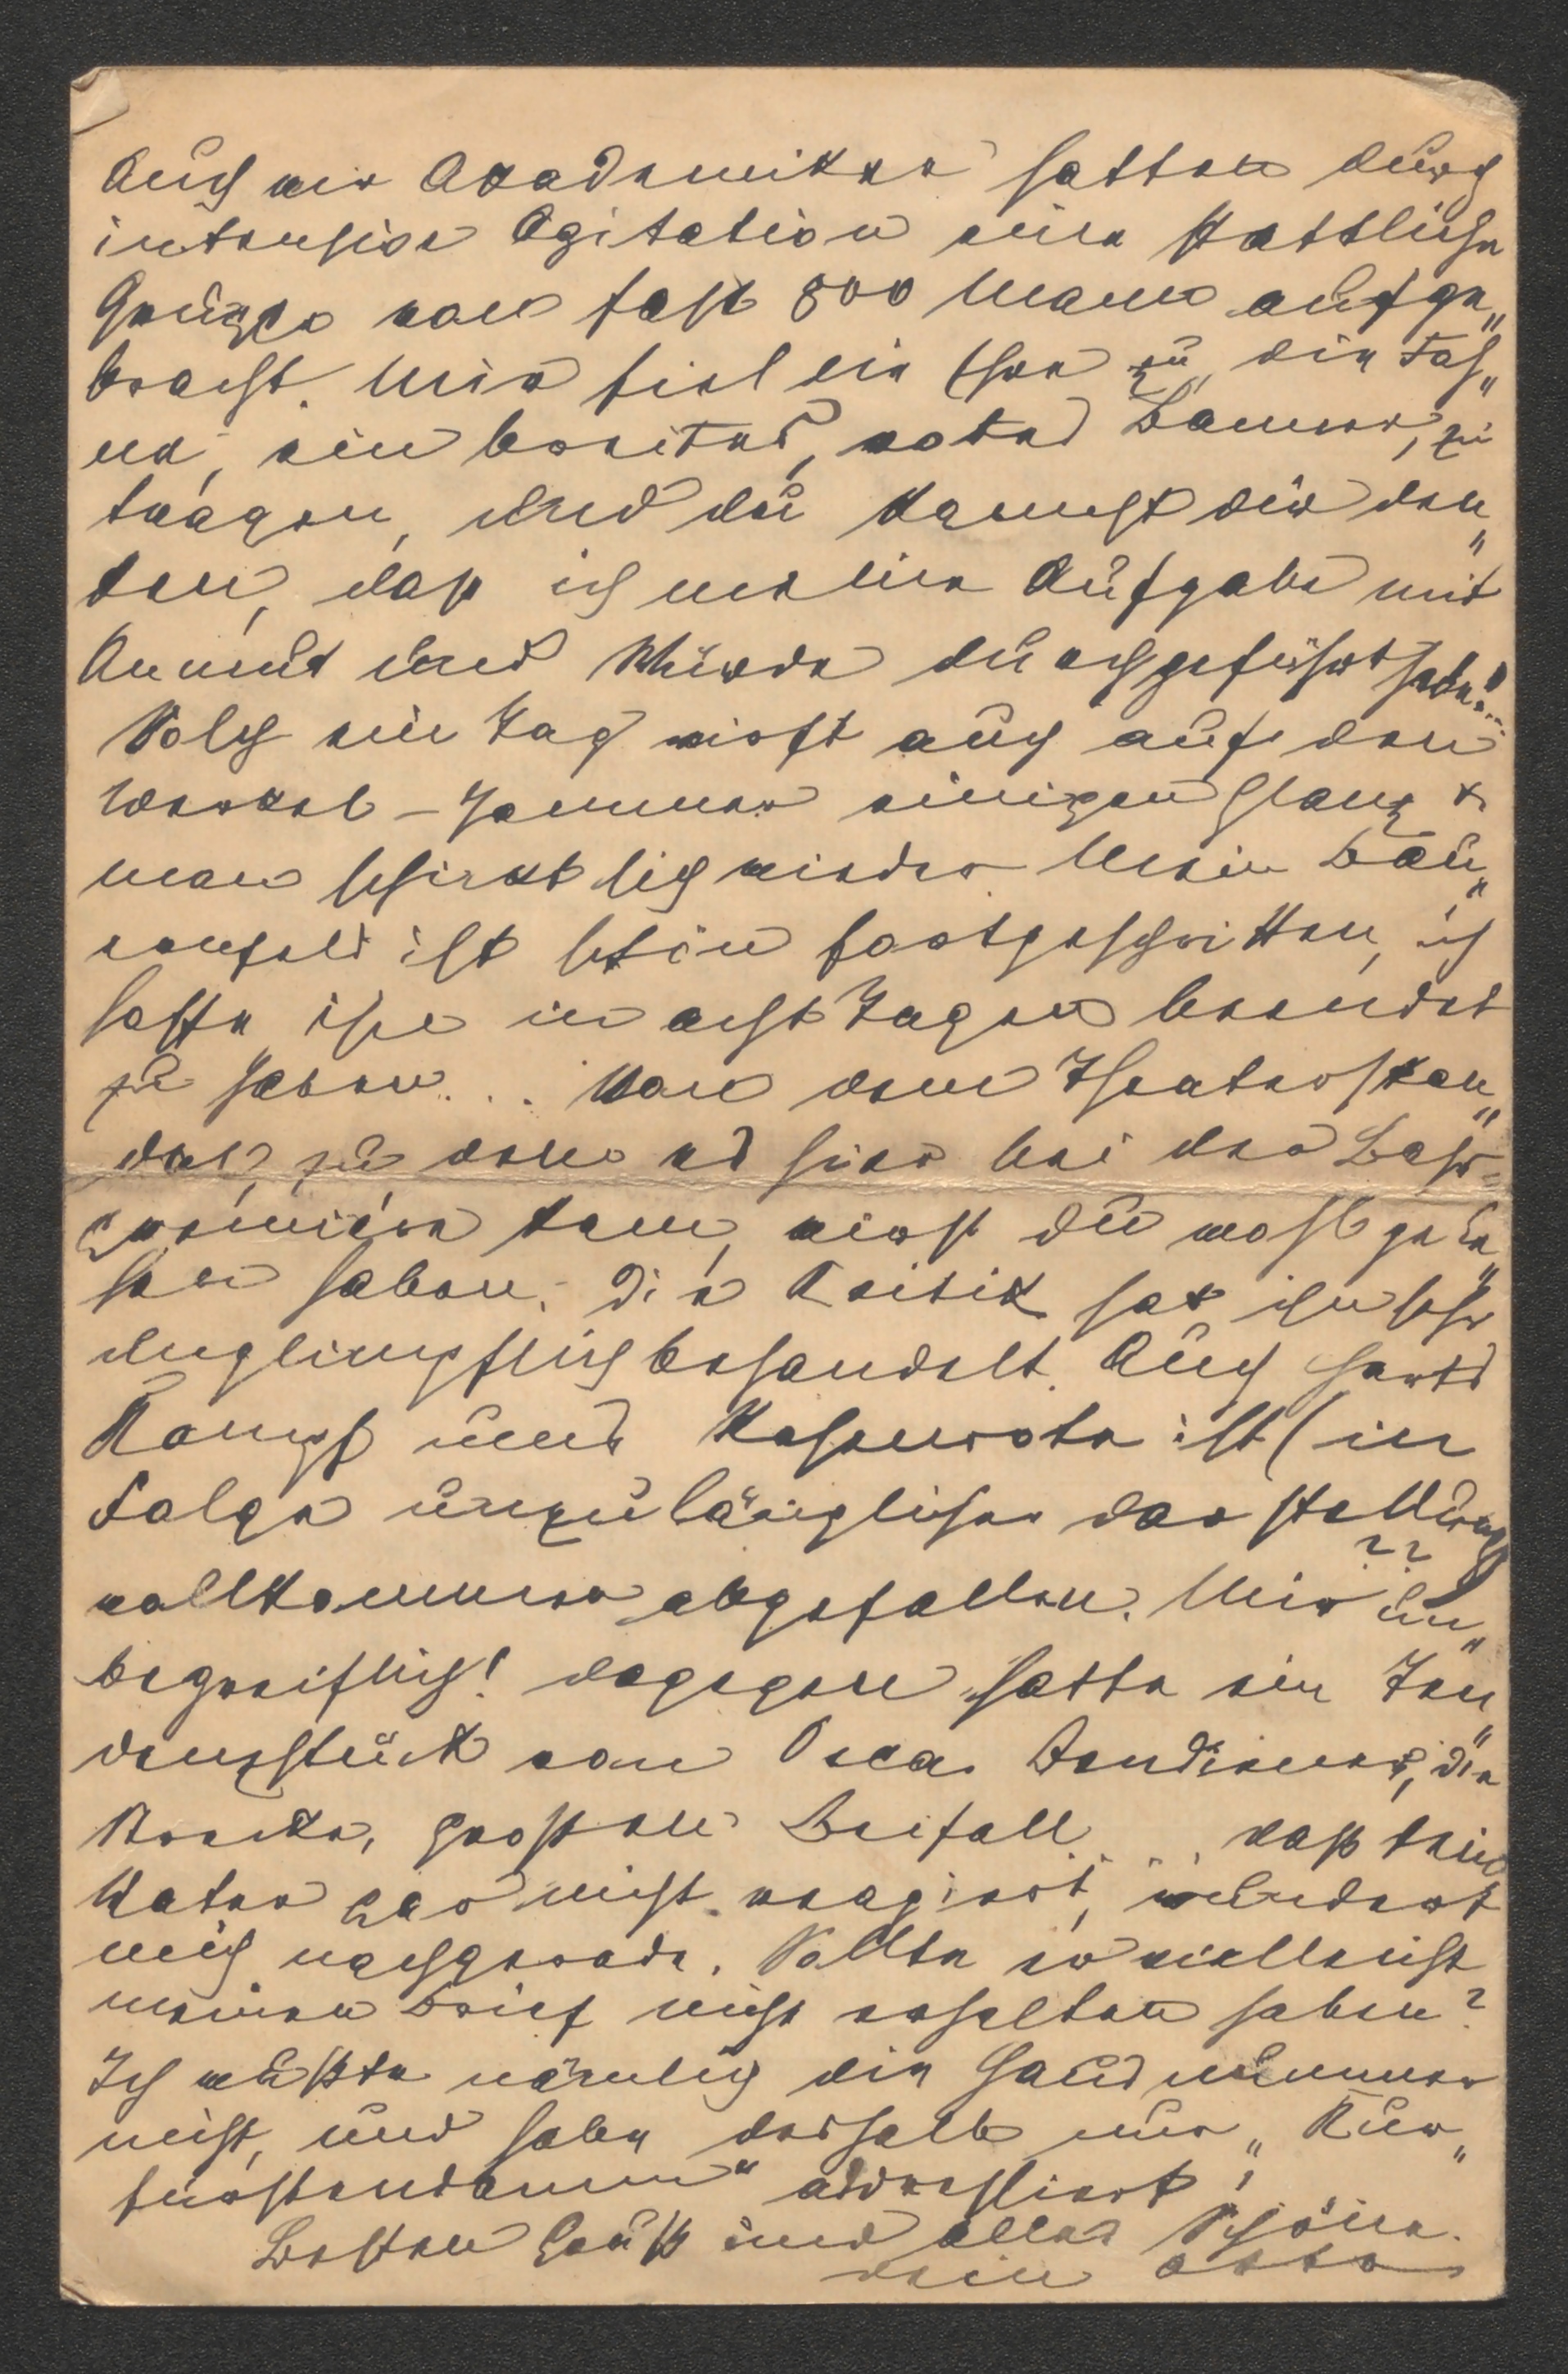 Auch wir Akademiker hatten durch
intensive Agitation eine stattliche
Gruppe von fast 800 Mann aufge„
bracht. Mir fiel die Ehre zu, die Fah„
ne, ein breites, rotes Banner, zu
tragen, und du kannst dir den„
ken, daß ich meine Aufgabe mit
Anmut und Würde durchgeführt habe!...
Solch ein Tag wirft auch auf den
Werkel-Jammer einigen Glanz &
man schickt sich wieder. Mein Bau„
ernfeld ist schön fortgeschritten, ich
hoffe ihn in acht Tagen beendet
zu haben... Von dem Theaterskan„
dal, zu dem es hier bei der Bahr-
première kam, wirst du wohl gele„
sen haben. Die Kritik hat ihn sehr
unglimpflich behandelt. Auch
Kampf und ist (in
Folge unzulänglicher Darstellung??)
vollkommen abgefallen. Mir un„
begreiflich! dagegen hatte ein Ten„
denzstück von Oscar Bendiener, die
Brücke, großen Beifall.... daß dein
Vater gar nicht reagiert, wundert
mich nachgerade. Sollte er vielleicht
meinen Brief nicht erhalten haben?
Ich wußte nämlich die Hausnummer
nicht, und habe deshalb nur „Kur„
fürstendamm“ adressiert!
Besten Gruß und alles Schöne.
dein Otto